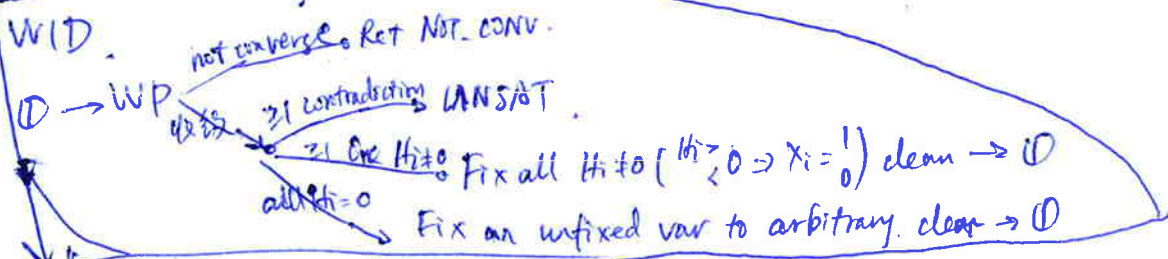 WID.
not converge → Ret NOT-CONV.
① → WP
收敛
≥1 contradiction → UNSAT.
≥1 One Hi≠0 → Fix all Hi≠0 (Hi ≷ 0 ⇒ Xi = 1 0) clean → ①
all Hi=0
Fix an unfixed var to arbitrary. clean → ①